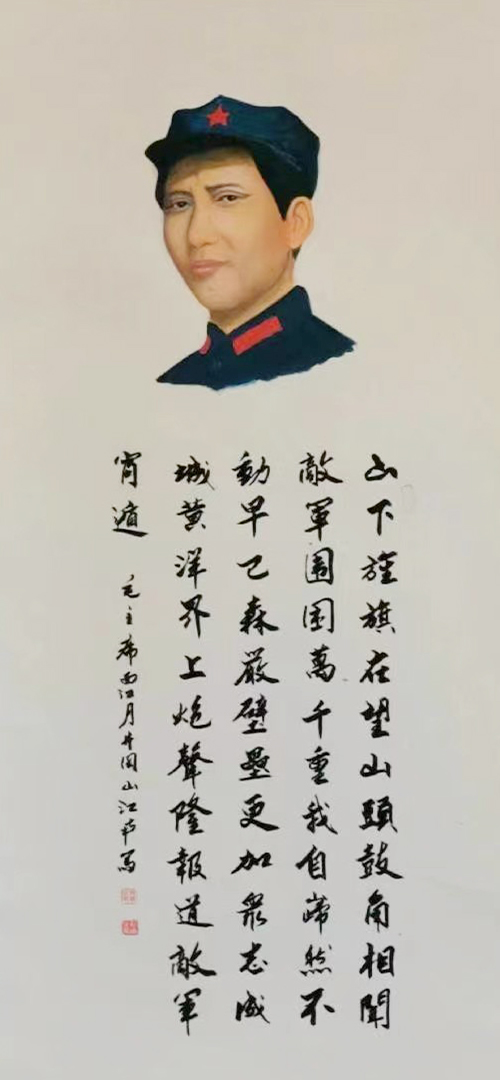 山下旌旗在望山頭鼓角相聞
敵軍圍困萬千重我自巋然不
動早已森嚴壁壘更加衆志成
城黄洋界上炮聲隆報道敵軍
宵遁
毛主席西江月井岡山江写